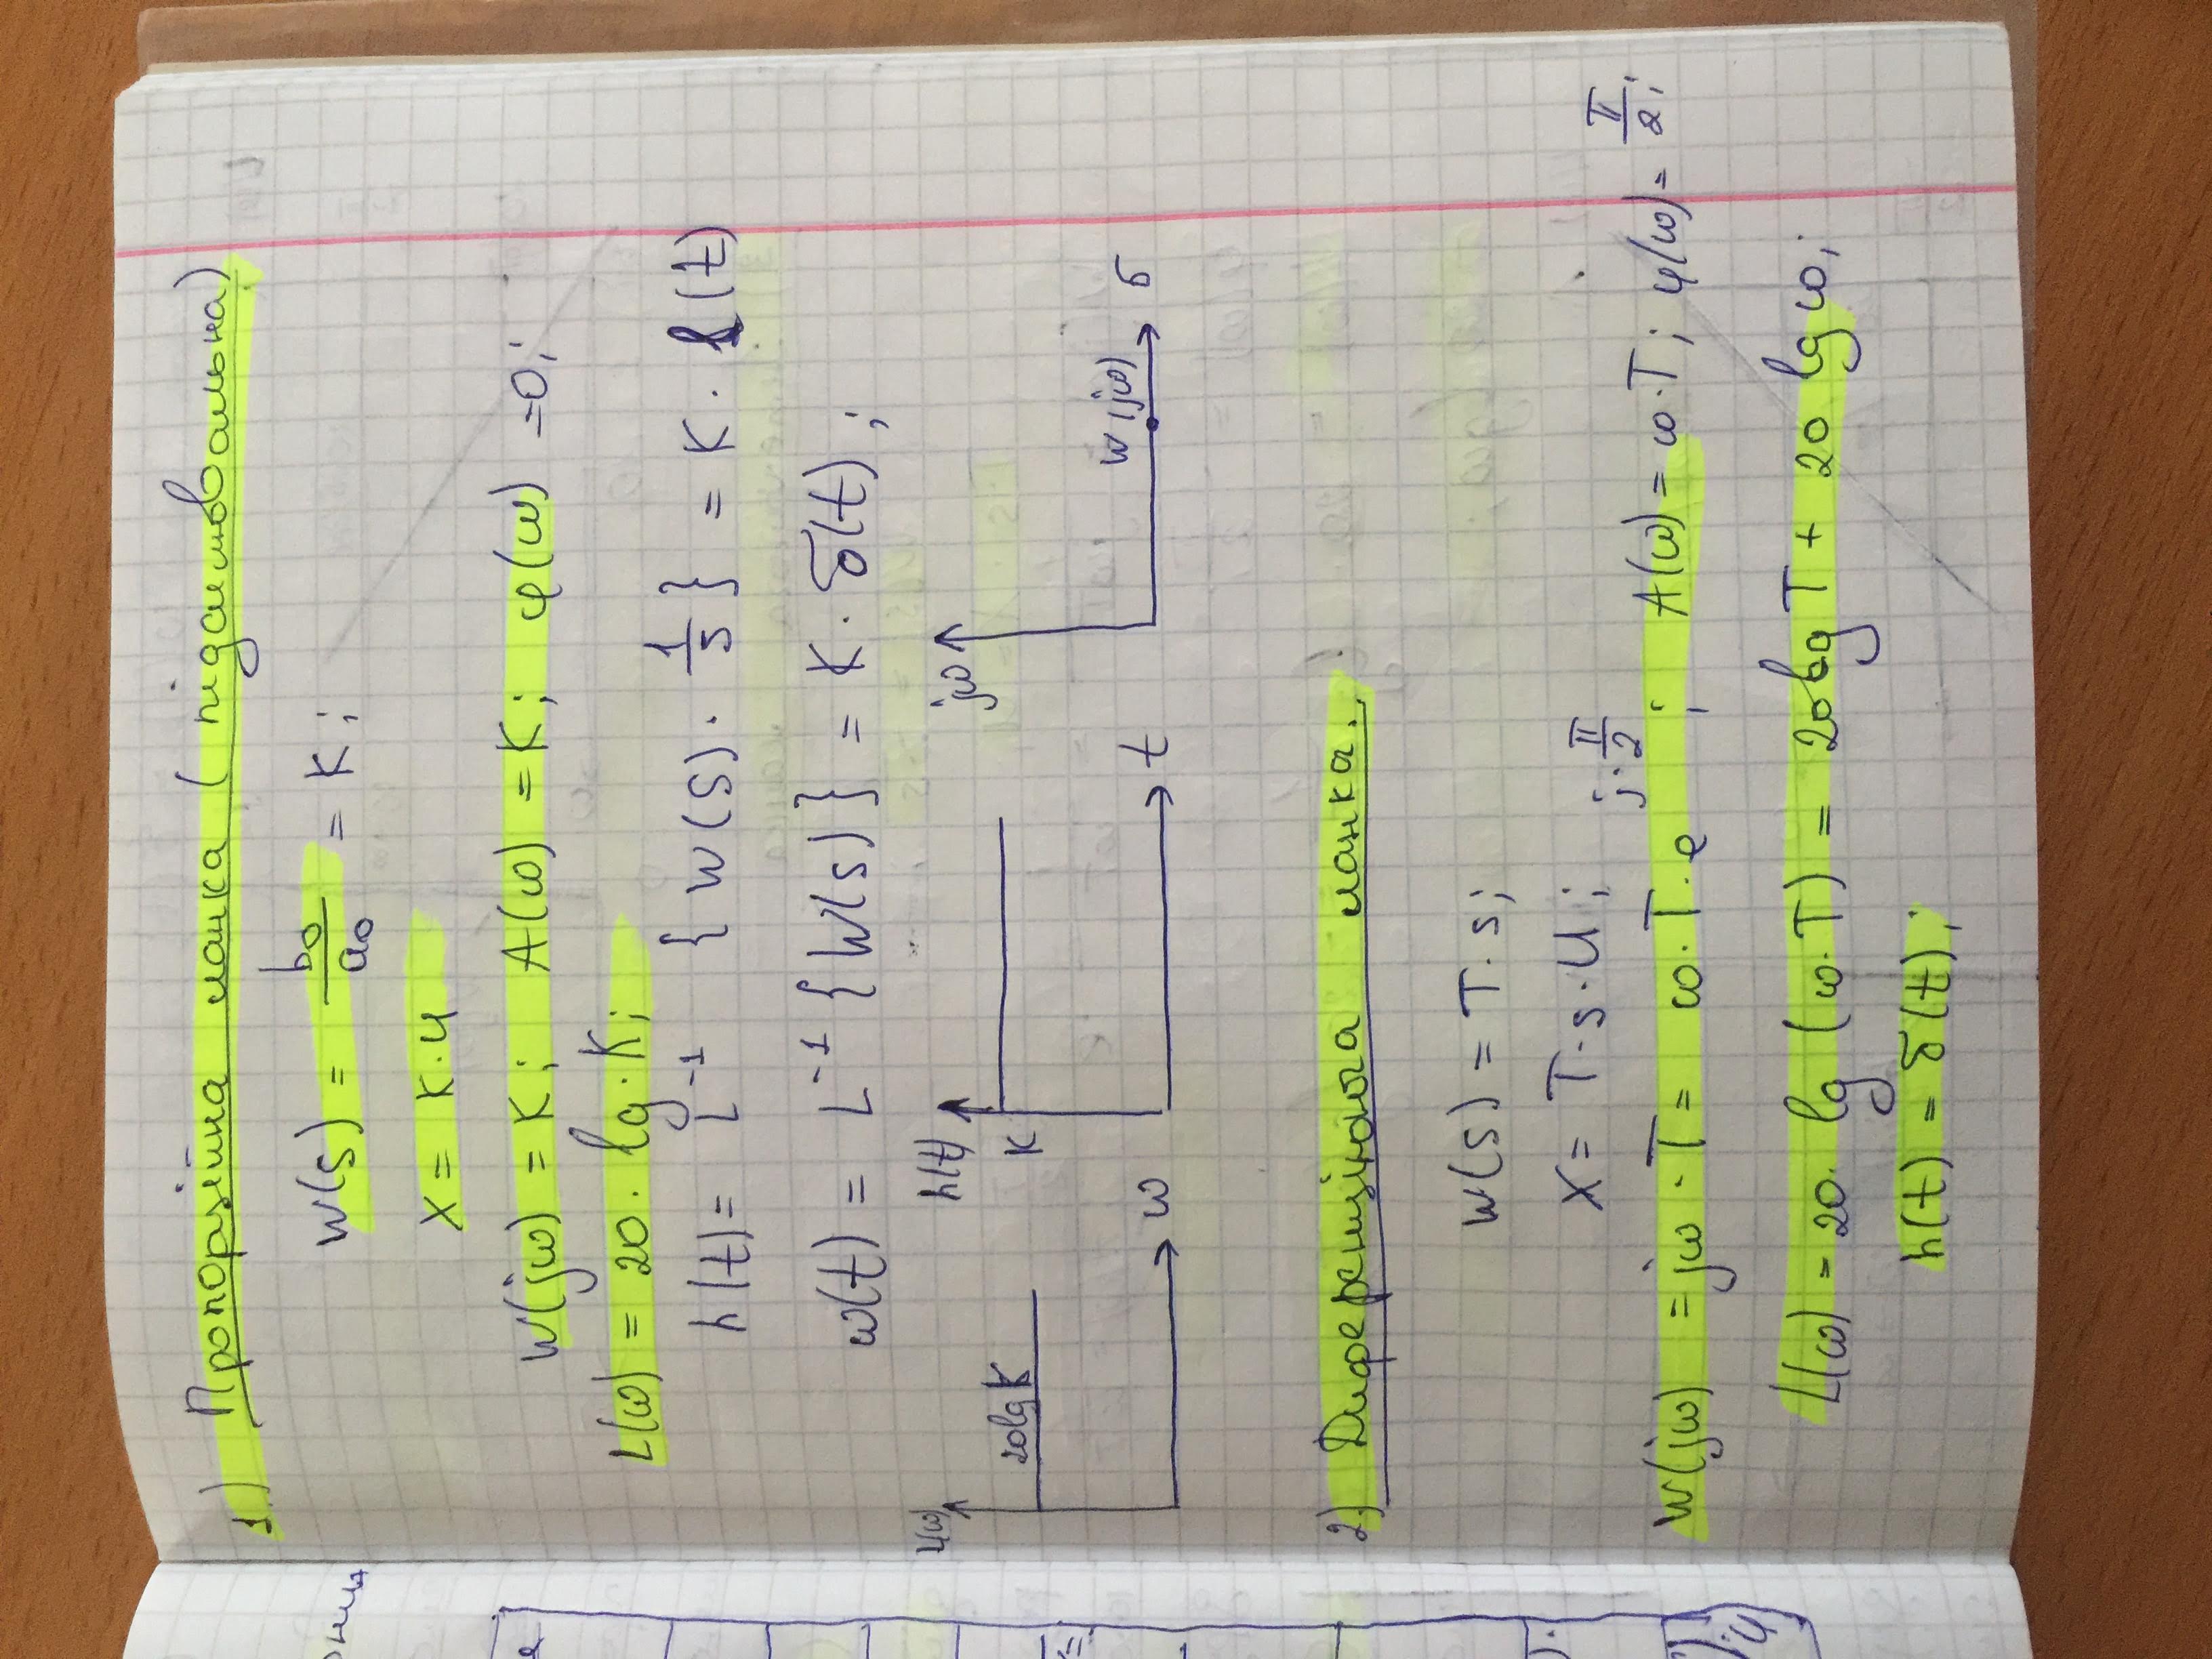 1.) Пропорційна ланка (підсилювальна)
W(s) = b₀/a₀ = K;
X = K·u
W(jω) = K; A(ω) = K; φ(ω) =0;
L(ω) = 20·lg·K;
h(t)= L⁻¹ {W(S)·1/s} = K·1(t)
ω(t) = L⁻¹ {W(s)} = K·δ(t);
L(ω)
20lgK
ω
h(t)
K
t
jω
W(jω)
σ
2.) Диференціююча ланка.
W(s) = T·s;
X = T·s·U;
W(jω) =jω·T= ω·T·e^(j·π/2); A(ω)=ω·T; φ(ω)=π/2;
L(ω) = 20·lg(ω·T) = 20lgT + 20 lgω;
h(t) = δ(t);